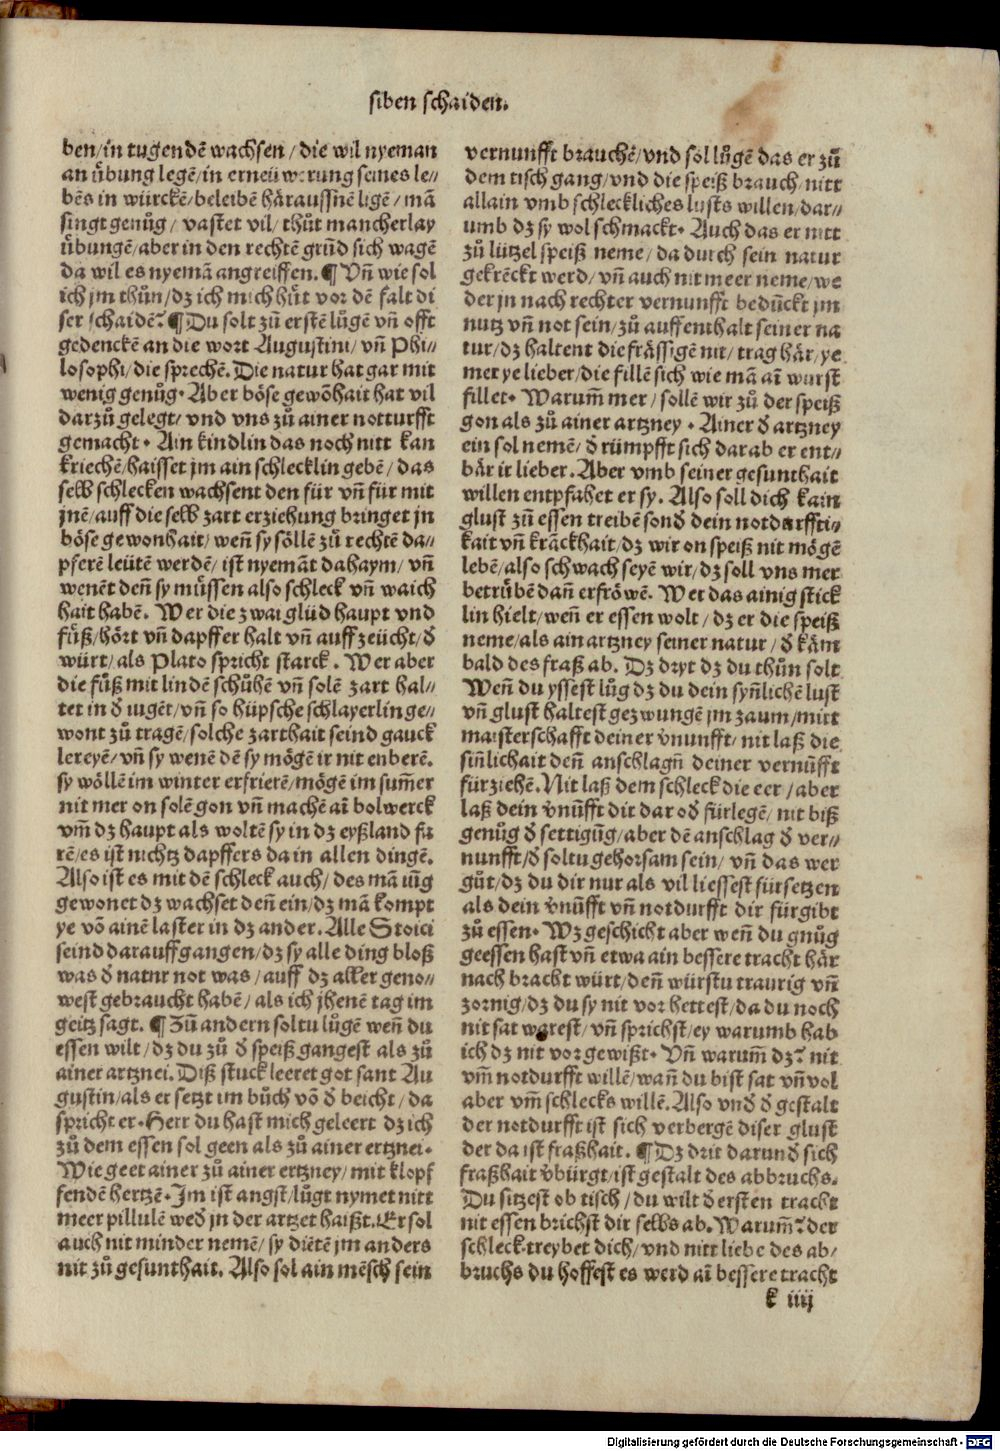 siben schaiden.
ben/in tugendē wachsen/die wil nyeman
an übung legē/in erneüwerung seines le⸗
bēs in würckē/beleibē häraussnē ligē/mā
singt genůg/ vastet vil/thůt mancherlay
übungē/aber in den rechtē grūd sich wagē
da wil es nyemā angreiffen. ¶ Vn̄ wie sol
ich jm thůn/dz ich mich hüt vor dē falt di
ser schaidē? ¶ Du solt zů erstē lůgē vn̄ offt
gedenckē an die wort Augustini/vn̄ Phi⸗
losophi/die sprechē. Die natur hat gar mit
wenig genůg. Aber böse gewōhait hat vil
darzů gelegt/ vnd vns zů ainer notturfft
gemacht. Ain kindlin das noch nitt kan
kriechē/haisset jm ain schlecklin gebē/das
selb schlecken wachsent den für vn̄ für mit
jnē/auff die selb zart erziehung bringet jn
böse gewonhait/wen̄ sy söllē zů rechtē da⸗
pferē leütē werdē/ist nyemāt dahaym/vn̄
wenēt den̄ sy müssen also schleck vn̄ waich
hait habē. Wer die zwai glüd haupt vnd
füß/hört vn̄ dapffer halt vn̄ auff zeücht/d̄
würt/als Plato spricht starck. Wer aber
die füß mit lindē schůhē vn̄ solē zart hal⸗
tet in d̄ iugēt/vn̄ so hüpsche schlayerlin ge⸗
wont zů tragē/solche zarthait seind gauck
lereyē/vn̄ sy wenē dē sy mögē ir nit enberē.
sy wöllē im winter erfrierē/mögē im sum̄er
nit mer on solē gon vn̄ machē aī bolwerck
vm̄ dz haupt als woltē sy in dz eyßland fa
rē/es ist nichtz dapffers da in allen dingē.
Also ist es mit dē schleck auch/des mā iūg
gewonet dz wachset den̄ ein/dz mā kompt
ye vō ainē laster in dz ander. Alle Stoici
seind darauff gangen/dz sy alle ding bloß
was d̄ natur not was/auff dz aller geno⸗
west gebraucht habē/als ich jhenē tag im
geitz sagt. ¶ Zů andern soltu lůgē wen̄ du
essen wilt/dz du zů d̄ speiß gangest als zů
ainer artznei. Diß stuck leeret got sant Au
gustin/als er setzt im bůch vō d̄ beicht/da
spricht er. Herr du hast mich geleert dz ich
zů dem essen sol geen als zů ainer ertznei.
Wie geet ainer zů ainer ertzney/mit klopf
fendē hertzē. Im ist angst/lůgt nymet nitt
meer pillulē wed̄ jn der artzet haißt. Er sol
auch nit minder nemē/sy diētē jm anders
nit zů gesunthait. Also sol ain mēsch sein
vernunfft brauchē/vnd sol lůgē das er zů
dem tisch gang/vnd die speiß brauch/nitt
allain vmb schleckliches lusts willen/dar⸗
umb dz sy wol schmackt. Auch das er nitt
zů lützel speiß neme/da durch sein natur
gekrēckt werd/vn̄ auch nit meer neme/we
der jn nach rechter vernunfft bedūckt jm
nutz vn̄ not sein/zů auffenthalt seiner na
tur/dz haltent die frässigē nit/trag här/ye
mer ye lieber/die fillē sich wie mā aī wurst
fillet. Warum̄ mer/sollē wir zů der speiß
gon als zů ainer artzney. Ainer d̄ artzney
ein sol nemē/d̄ rümpfft sich darab er ent⸗
bär ir lieber. Aber vmb seiner gesunthait
willen entpfahet er sy. Also soll dich kain
glust zů essen treibē sond̄ dein notdurffti⸗
kait vn̄ krāckhait/dz wir on speiß nit mögē
lebē/also schwach seyē wir/dz soll vns mer
betrübē dan̄ erfröwē. Wer das ainig stick
lin hielt/wen̄ er essen wolt/dz er die speiß
neme/als ain artzney seiner natur/d̄ kām
bald des fraß ab. Dz dryt dz du thůn solt
Wen̄ du yssest lůg dz du dein syn̄lichē lust
vn̄ glust haltest gezwungē jm zaum/mitt
maisterschafft deiner v̄nunfft/nit laß die
sin̄lichait den̄ anschlagn̄ deiner vernūfft
fürziehē. Nit laß dem schleck die eer/aber
laß dein v̄nūfft dir dar od̄ fürlegē/nit biß
genůg d̄ settigūg/aber dē anschlag d̄ ver⸗
nunfft/d̄ soltu gehorsam sein/vn̄ das wer
gůt/dz du dir nur als vil liessest fürsetzen
als dein v̄nūfft vn̄ notdurfft dir fürgibt
zů essen. Wz geschicht aber wen̄ du gnůg
geessen hast vn̄ etwa ain bessere tracht här
nach bracht würt/den̄ würstu traurig vn̄
zornig/dz du sy nit vor hettest/da du noch
nit sat warest/vn̄ sprichst/ey warumb hab
ich dz nit vor gewißt. Vn̄ warum̄ dz? nit
vm̄ notdurfft willē/wan̄ du bist sat vn̄ vol
aber vm̄ schlecks willē. Also vnd̄ d̄ gestalt
der notdurfft ist sich verbergē diser glust
der da ist fraßhait. ¶ Dz drit darund̄ sich
fraßhait v̄bürgt/ist gestalt des abbruchs.
Du sitzest ob tisch/du wilt d̄ ersten tracht
nit essen brichst dir selbs ab. Warum̄? der
schleck treybet dich/vnd nitt liebe des ab⸗
bruchs du hoffest es werd aī bessere tracht
k iiij
Digitalisierung gefördert durch die Deutsche Forschungsgemeinschaft - DFG